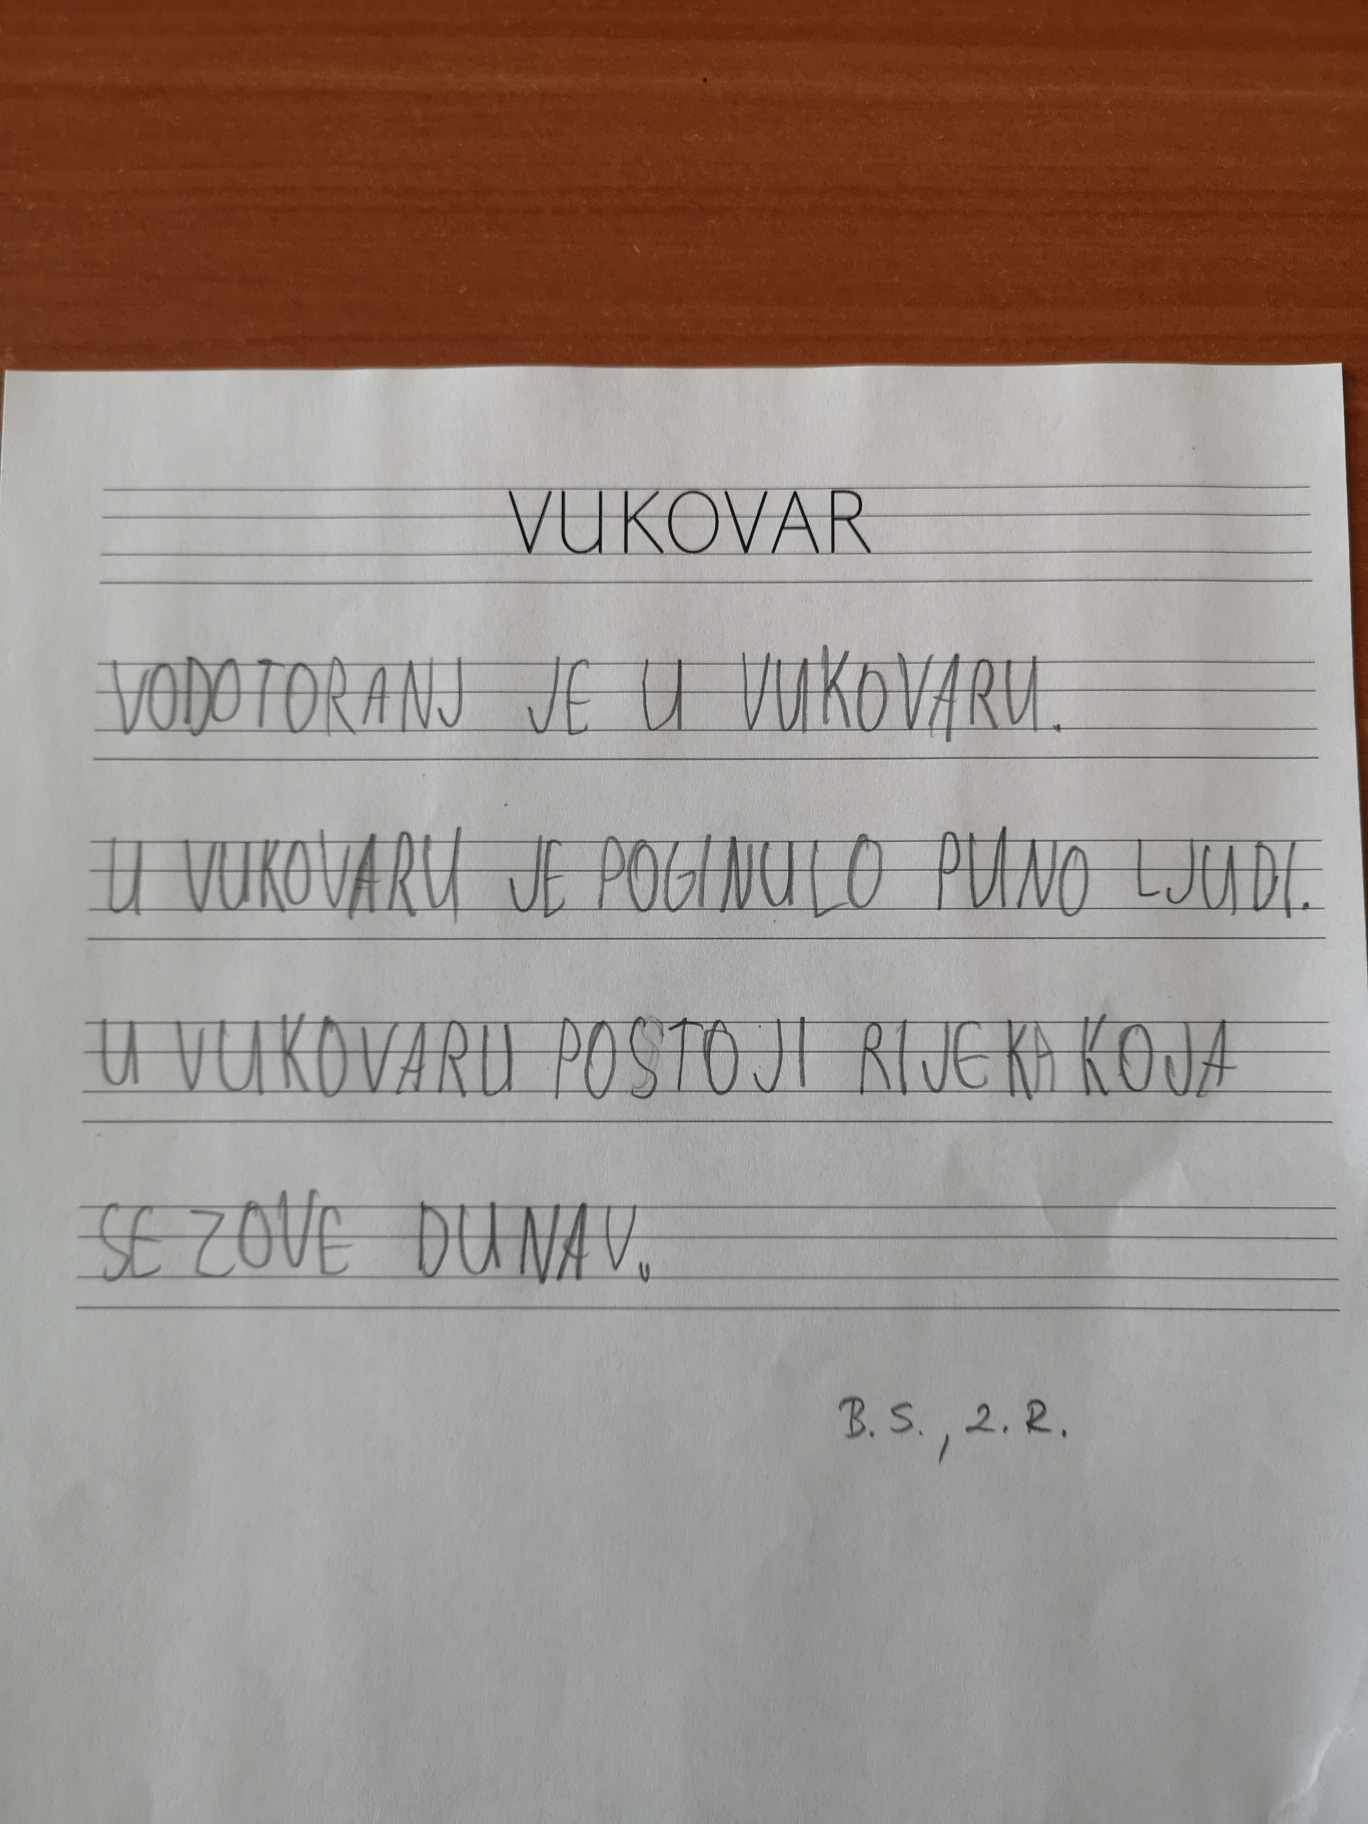 VUKOVAR
VODOTORANJ JE U VUKOVARU.
U VUKOVARU JE POGINULO PUNO LJUDI.
U VUKOVARU POSTOJI RIJEKA KOJA
SE ZOVE DUNAV.
B. S., 2. R.